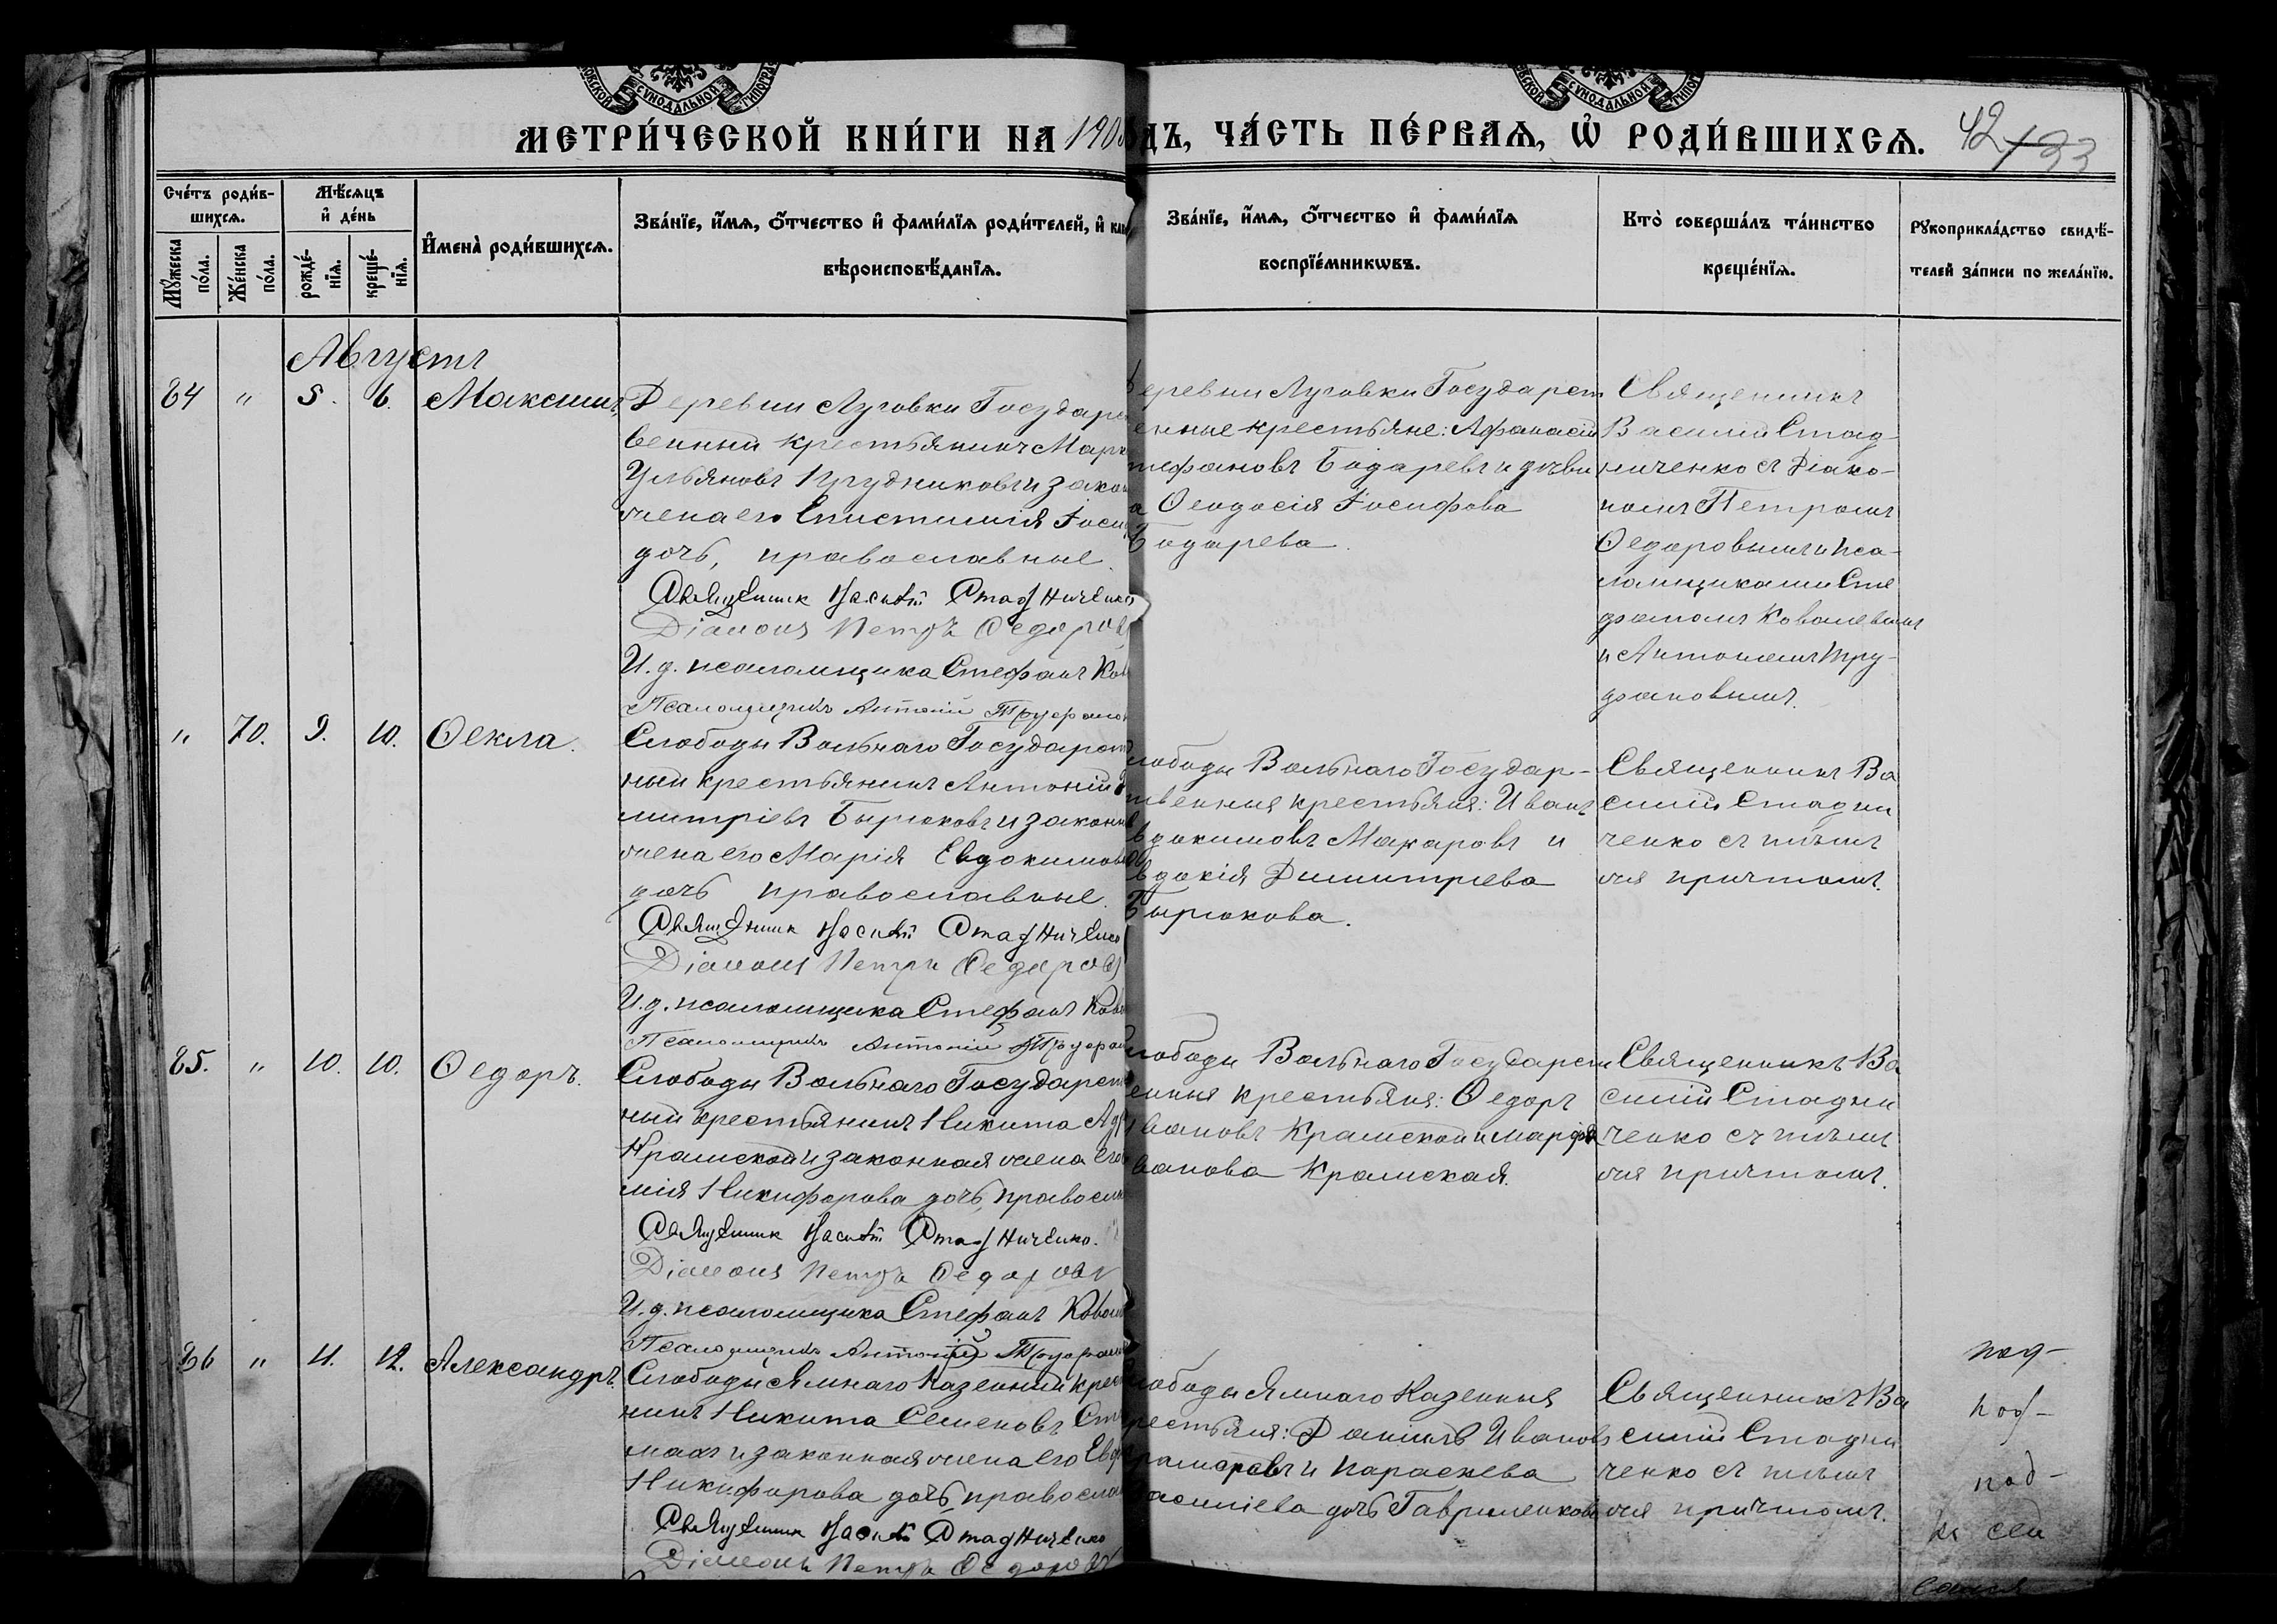 СѴНОДАЛЬНОЙ
СѴНОДАЛЬНОЙ
МЕТРИ́ЧЕСКОЙ КНИ́ГИ НА 190
ДЪ, ЧА́СТЬ ПЕ́РВАѦ, Ѡ҆ РОДИ́ВШИХСѦ.
42
Сче́тъ роди́в-
шихсѧ.
Мꙋ́жеска по́ла.
Же́нска по́ла.
Мѣ́сѧцъ
и҆ де́нь
рожде́-
нїѧ.
креще́-
нїѧ.
И҆мена̀ роди́вшихсѧ.
Зва́нїе, и҆́мѧ, ѻ҆́тчество и҆ фами́лїѧ роди́телей, и҆
вѣроисповѣ́данїѧ.
Зва́нїе, и҆́мѧ, ѻ҆́тчество и҆ фами́лїѧ
воспрїе́мникѡвъ.
Кто̀ соверша́лъ та́инство
креще́нїѧ.
Рꙋкоприкла́дство свидѣ́-
телей за́писи по жела́нїю.
Августъ
84 " 5. 6. Максимъ
Деревни Луговки Государст
венный крестьянинъ Марк
Ульяновъ Прудниковъ и закон
жена его Епистимія Іоси
дочь, православные.
Священник Василій Стадниченко
Діаконъ Петръ Ѳедоровъ
И. д. псаломщика Стефанъ Ков
Псаломщикъ Антоній Труфанов
еревни Луговки Государст
енные крестьяне: Афанасій
тефановъ Бодаревъ и дѣви
а Ѳеодосія Іосифова
Бодарева.
Священникъ
Василій Стад-
ниченко съ діако-
номъ Петромъ
Ѳедоровымъ и пса-
ломщиками Сте
фаномъ Ковалевымъ
и Антоніемъ Тру-
фановымъ.
" 70. 9. 10. Ѳекла.
Слободы Вольнаго Государств
ный крестьянинъ Антоній
митріевъ Бырюковъ и законн
жена его Марія Евдокимов
дочь православные.
Священник Василій Стадниченко
Діаконъ Петръ Ѳедоровъ
И. д. псаломщика Стефанъ Ков
Псаломщикъ Антоній Труфан
лободы Вольнаго Государ-
твенныя крестьяня: Иванъ
вдокимовъ Макаровъ и
вдокія Димитрева
Бырюкова.
Священникъ Ва
силій Стадни
ченко съ тѣмъ
же причтомъ.
85. " 10. 10. Ѳедоръ.
Слободы Вольнаго Государств
ный крестьянинъ Никита
Крамской и законная жена его
мія Никифорова дочь, правосла
Священник Василій Стадниченко.
Діаконъ Петръ Ѳедоровъ
И. д. псаломщика Стефанъ Ковал
Псаломщикъ Антоній Труфан
лободы Вольнаго Государст
енныя крестьяня: Ѳедоръ
вановъ Крамской и Марфа
ванова Крамская.
Священникъ Ва
силій Стадни
ченко съ тѣмъ
же причтомъ.
86 " 11. 12. Александръ.
Слободы Ямнаго Казенный крест
нинъ Никита Семеновъ
махъ и законная жена его Евд
Никифорова дочь, правосла
Священник Василій Стадниченко
Діаконъ Петръ Ѳедоровъ
лободы Ямнаго Казенныя
рестьяня: Даниилъ Ивановъ
рамаровъ и Параскева
асиліева дочь Гавриленкова
Священникъ Ва
силій Стадни
ченко съ тѣмъ
же причтомъ.
под-
под-
под-